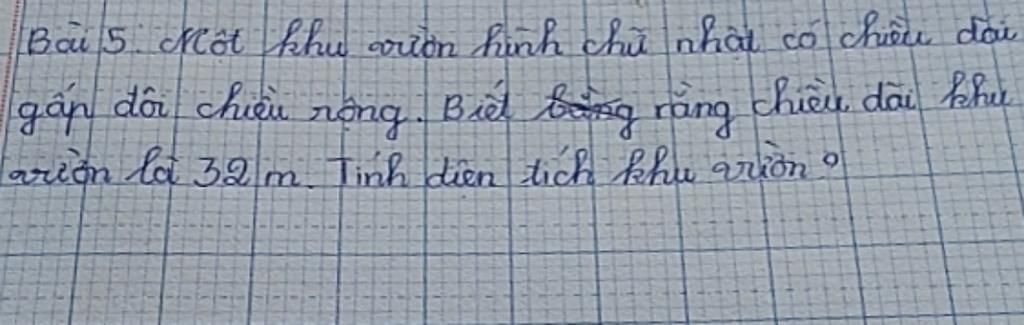 Bài 5. Một khu vườn hình chữ nhật có chiều dài
gấp đôi chiều rộng. Biết rằng chiều dài khu
vườn là 32 m. Tính diện tích khu vườn?